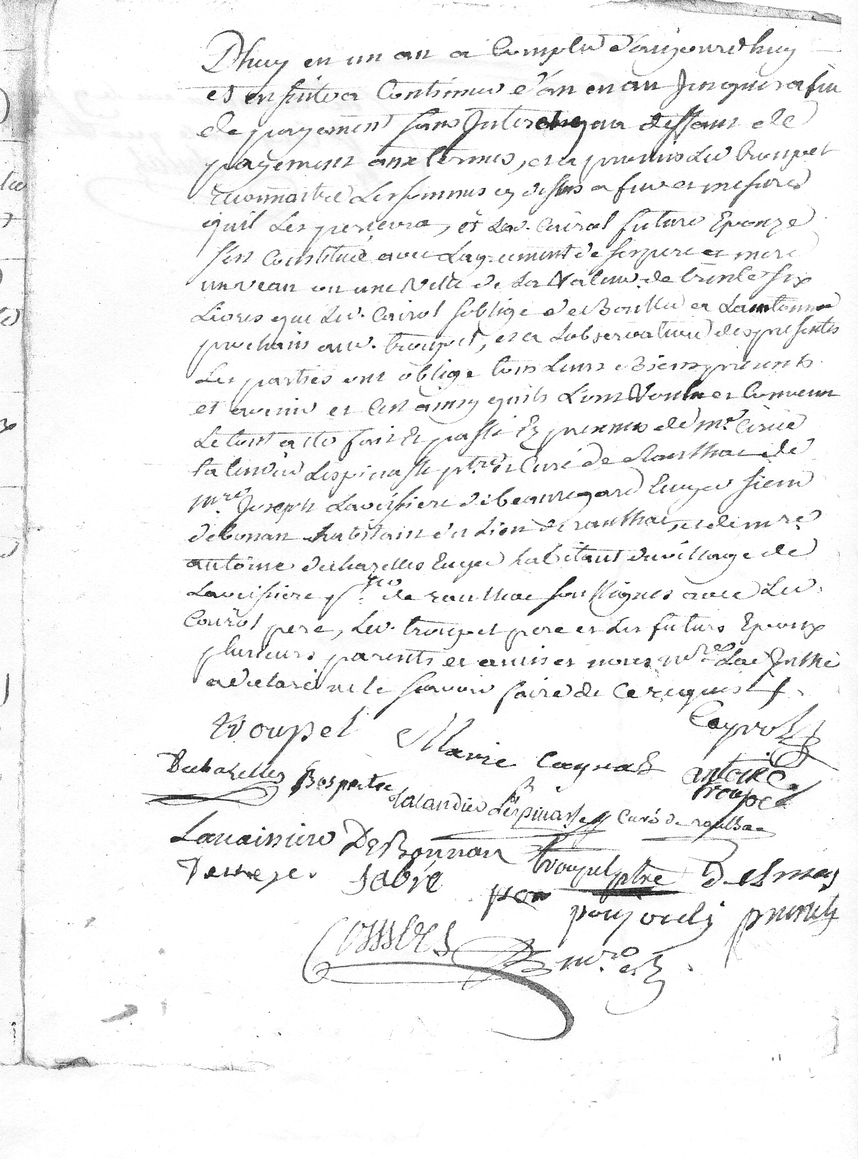 D'huy en un an a Compter d'aujourdhuy
et ensuitte a Continuer d'an en an Jusques a fin
de payement sans Interest qu'au deffaut de
payement aux termes, et a promis led. troupel
reconnaitre les sommes cy dessus a fur et mesure
quil les percevra, et lad. Cairol future Epouze
sest Constitué avec lagrement de ses pere et mere
un veau ou une velle de la valeur de trente six
Livres que led. Cairol soblige de Bailler a Lautomne
prochain aud. troupel, et a Lobservation des presentes
Les parties ont obligé tous leurs Biens presents
et avenir et Cest ainsy quils L'ont Voulu et Convenu
Le tout a été fait Et passé En presence de mre
Lalandie Lespinasse ptre et Curé de routhac de
mre Joseph Lavaissiere de beauregard Ecuyer sieur
de bonan habitant du Lieu de routhac, et de mre
antoine dechazelles Ecuyer habitant du village de
Lavaissiere psse de routhac soussignés avec led.
Cairol pere, led. troupel pere et les futurs Epoux
plusieurs parents et amis et nous nore La Juthe
a declaré ne le scavoir faire de Ce requise
troupel Marie Cayrol Cayrol
Dechazelles Bespertre antoine troupel
Lalandie Lespinasse Curé de routhac
Lavaissiere De Bonnan troupel ptre Delmas
Sabie
Cosseres nore